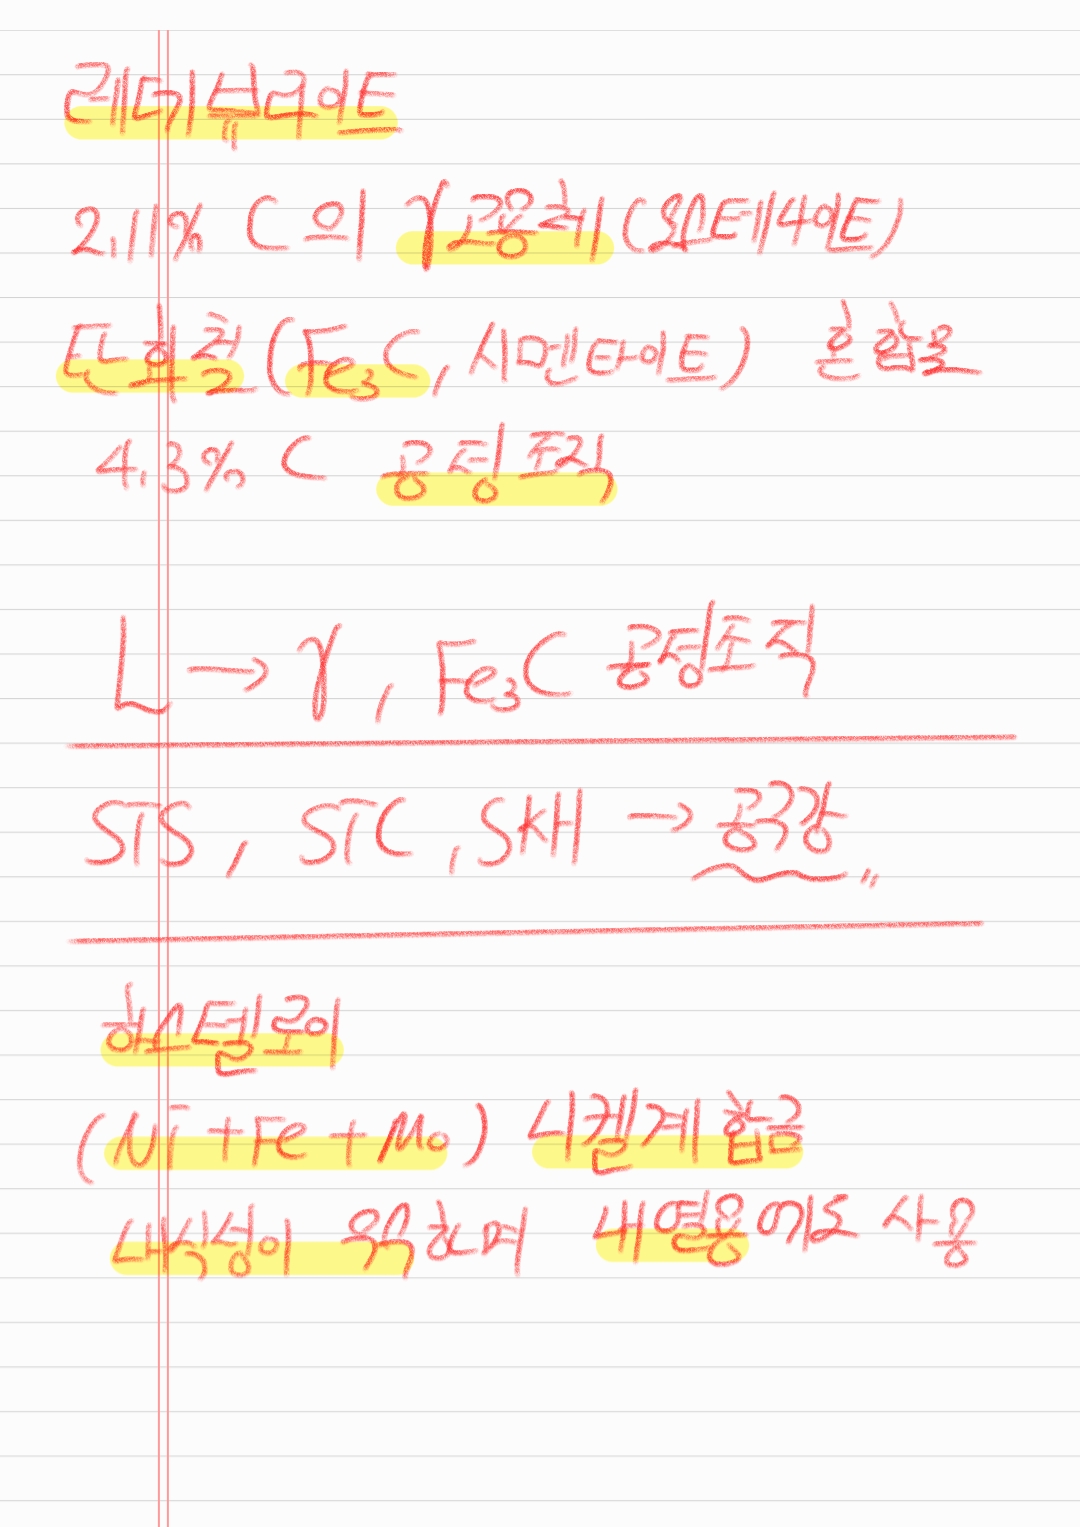 레데뷰라이트
2.11% C 의 γ고용체 (오스테나이트)
탄화철 (Fe₃C, 시멘타이트) 혼합물
4.3% C 공정조직
L → γ, Fe₃C 공정조직
STS, STC, SKH → 공구강〃
하스텔로이
(Ni + Fe + Mo) 니켈계 합금
내식성이 우수하며 내열용으로도 사용